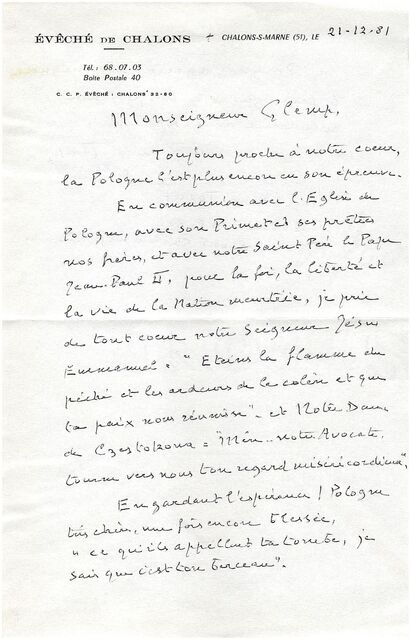 ÉVÊCHÉ DE CHALONS + CHALONS-S-MARNE (51), LE 21-12-81
Tél. : 68.07.03
Boite Postale 40
C. C. P. ÉVÊCHÉ : CHALONS 32-60
Monseigneur Glemp,
Toujours proche à notre coeur,
la Pologne l'est plus encore en son épreuve.
En communion avec l'Eglise de
Pologne, avec son Primat et ses prêtres
nos frères, et avec notre Saint Père le Pape
Jean-Paul II, pour la foi, la liberté et
la vie de la Nation meurtrie, je prie
de tout coeur notre Seigneur Jésus
Emmanuel = "Eteins la flamme du
péché et les ardeurs de la colère et que
ta paix nous réunisse" - et Notre Dame
de Czestokowa = "Mère - notre Avocate,
tourne vers nous ton regard miséricordieux",
En gardant l'espérance ! Pologne
très chère, une fois encore blessée,
"ce qu'ils appellent ta tombe, je
sais que c'est ton berceau".